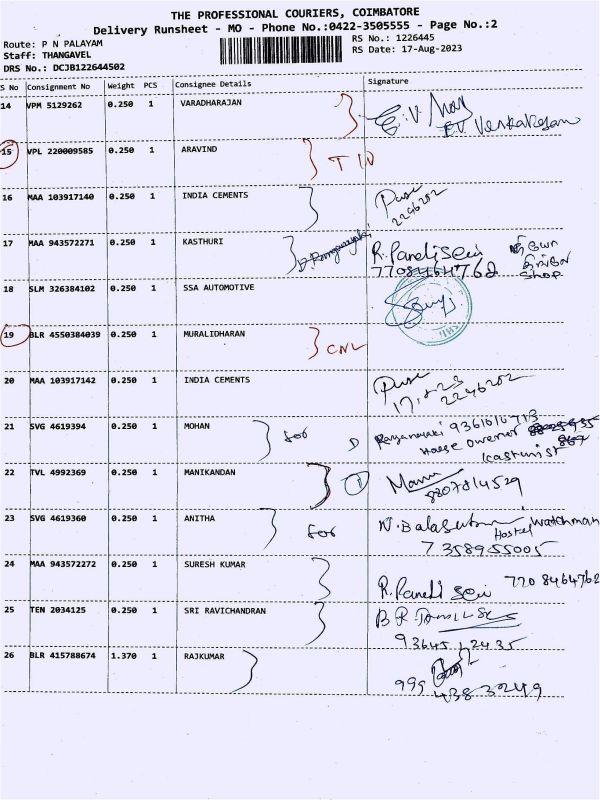 THE PROFESSIONAL COURIERS, COIMBATORE
Delivery Runsheet - MO - Phone No.:0422-3505555 - Page No.:2
Route: P N PALAYAM
RS No.: 1226445
Staff: THANGAVEL
RS Date: 17-Aug-2023
DRS No.: DCJB122644502
S No Consignment No Weight PCS Consignee Details Signature
14 VPM 5129262 0.250 1 VARADHARAJAN
E.V Venkatesan
15 VPL 220009585 0.250 1 ARAVIND
16 MAA 103917140 0.250 1 INDIA CEMENTS
2246202
17 MAA 943572271 0.250 1 KASTHURI R. Pandiselvi
7708464762
shop
18 SLM 326384102 0.250 1 SSA AUTOMOTIVE
19 BLR 4550384039 0.250 1 MURALIDHARAN
CNL
20 MAA 103917142 0.250 1 INDIA CEMENTS
17.8.23 2246202
21 SVG 4619394 0.250 1 MOHAN for
House owner
22 TVL 4992369 0.250 1 MANIKANDAN
8207814529
23 SVG 4619360 0.250 1 ANITHA for Hostel watchman
7358955005
24 MAA 943572272 0.250 1 SURESH KUMAR
25 TEN 2034125 0.250 1 SRI RAVICHANDRAN
93645 12435
26 BLR 415788674 1.370 1 RAJKUMAR